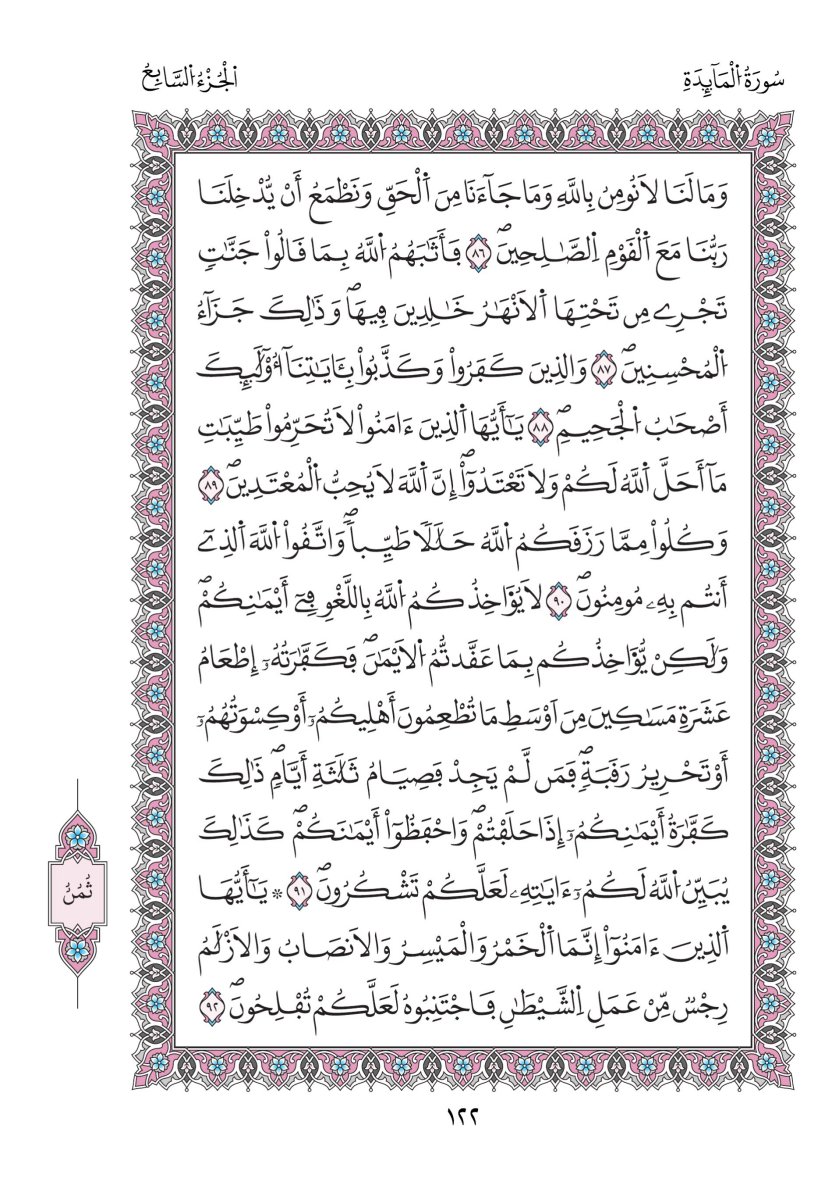 سُورَةُ اُ۬لْمَآئِدَةِ
اَ۬لْجُزْءُ اُ۬لسَّابِعُ
وَمَا لَنَا لَا نُومِنُ بِاللَّهِ وَمَا جَآءَنَا مِنَ اَ۬لْحَقِّ وَنَطْمَعُ أَنْ يُّدْخِلَنَا
رَبُّنَا مَعَ اَ۬لْقَوْمِ اِ۬لصَّٰلِحِينَۖ ٨٦ فَأَثَٰبَهُمُ اُ۬للَّهُ بِمَا قَالُواْ جَنَّٰتٖ
تَجْرِے مِن تَحْتِهَا اَ۬لَانْهَٰرُ خَٰلِدِينَ فِيهَاۖ وَذَٰلِكَ جَزَآءُ
اُ۬لْمُحْسِنِينَۖ ٨٧ وَالذِينَ كَفَرُواْ وَكَذَّبُواْ بِـَٔايَٰتِنَآ أُوْلَٰٓئِكَ
أَصْحَٰبُ اُ۬لْجَحِيمِۖ ٨٨ يَٰٓأَيُّهَا اَ۬لذِينَ ءَامَنُواْ لَا تُحَرِّمُواْ طَيِّبَٰتِ
مَآ أَحَلَّ اَ۬للَّهُ لَكُمْ وَلَا تَعْتَدُوٓاْۖ إِنَّ اَ۬للَّهَ لَا يُحِبُّ اُ۬لْمُعْتَدِينَۖ ٨٩
وَكُلُواْ مِمَّا رَزَقَكُمُ اُ۬للَّهُ حَلَٰلٗا طَيِّباٗۖ وَاتَّقُواْ اُ۬للَّهَ اَ۬لذِےٓ
أَنتُم بِهِۦ مُومِنُونَۖ ٩٠ لَا يُوَ۬اخِذُكُمُ اُ۬للَّهُ بِاللَّغْوِ فِےٓ أَيْمَٰنِكُمْۖ
وَلَٰكِنْ يُّوَ۬اخِذُكُم بِمَا عَقَّدتُّمُ اُ۬لَايْمَٰنَۖ فَكَفَّٰرَتُهُۥٓ إِطْعَامُ
عَشَرَةِ مَسَٰكِينَ مِنَ اَوْسَطِ مَا تُطْعِمُونَ أَهْلِيكُمُۥٓ أَوْ كِسْوَتُهُمُۥٓ
أَوْ تَحْرِيرُ رَقَبَةٖۖ فَمَن لَّمْ يَجِدْ فَصِيَامُ ثَلَٰثَةِ أَيَّامٖۖ ذَٰلِكَ
كَفَّٰرَةُ أَيْمَٰنِكُمُۥٓ إِذَا حَلَفْتُمْۖ وَاحْفَظُوٓاْ أَيْمَٰنَكُمْۖ كَذَٰلِكَ
يُبَيِّنُ اُ۬للَّهُ لَكُمُۥٓ ءَايَٰتِهِۦ لَعَلَّكُمْ تَشْكُرُونَۖ ٩١ * يَٰٓأَيُّهَا
اَ۬لذِينَ ءَامَنُوٓاْ إِنَّمَا اَ۬لْخَمْرُ وَالْمَيْسِرُ وَالَانصَابُ وَالَازْلَٰمُ
رِجْسٞ مِّنْ عَمَلِ اِ۬لشَّيْطَٰنِ فَاجْتَنِبُوهُ لَعَلَّكُمْ تُفْلِحُونَۖ ٩٢
ثُمُنُ
١٢٢